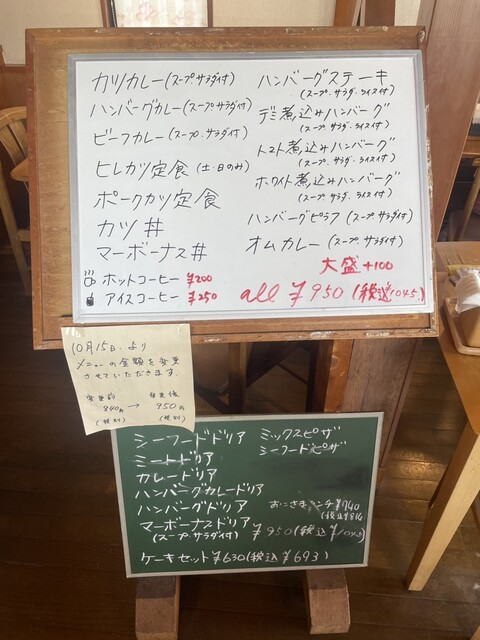 カツカレー(スープサラダ付)
ハンバーグカレー(スープ.サラダ付)
ビーフカレー(スープ.サラダ付)
ヒレカツ定食(土・日のみ)
ポークカツ定食
カツ丼
マーボーナス丼
ホットコーヒー ¥200
アイスコーヒー ¥250
ハンバーグステーキ
(スープ.サラダ.ライス付)
デミ煮込みハンバーグ
(スープ.サラダ.ライス付)
トマト煮込みハンバーグ
(スープ.サラダ.ライス付)
ホワイト煮込みハンバーグ
(スープ.サラダ.ライス付)
ハンバーグピラフ(スープ.サラダ付)
オムカレー(スープ.サラダ付)
大盛+100
all ¥950(税込1045.)
10月15日.より
メニューの金額を変更
させていただきます.
変更前 変更後
840円 → 950円
(税別) (税別)
シーフードドリア
ミートドリア
カレードリア
ハンバーグカレードリア
ハンバーグドリア
マーボーナスドリア
(スープ.サラダ付) ¥950(税込¥1045)
ミックスピザ
シーフードピザ
おこさまランチ¥740
(税込¥814)
ケーキセット¥630(税込¥693)